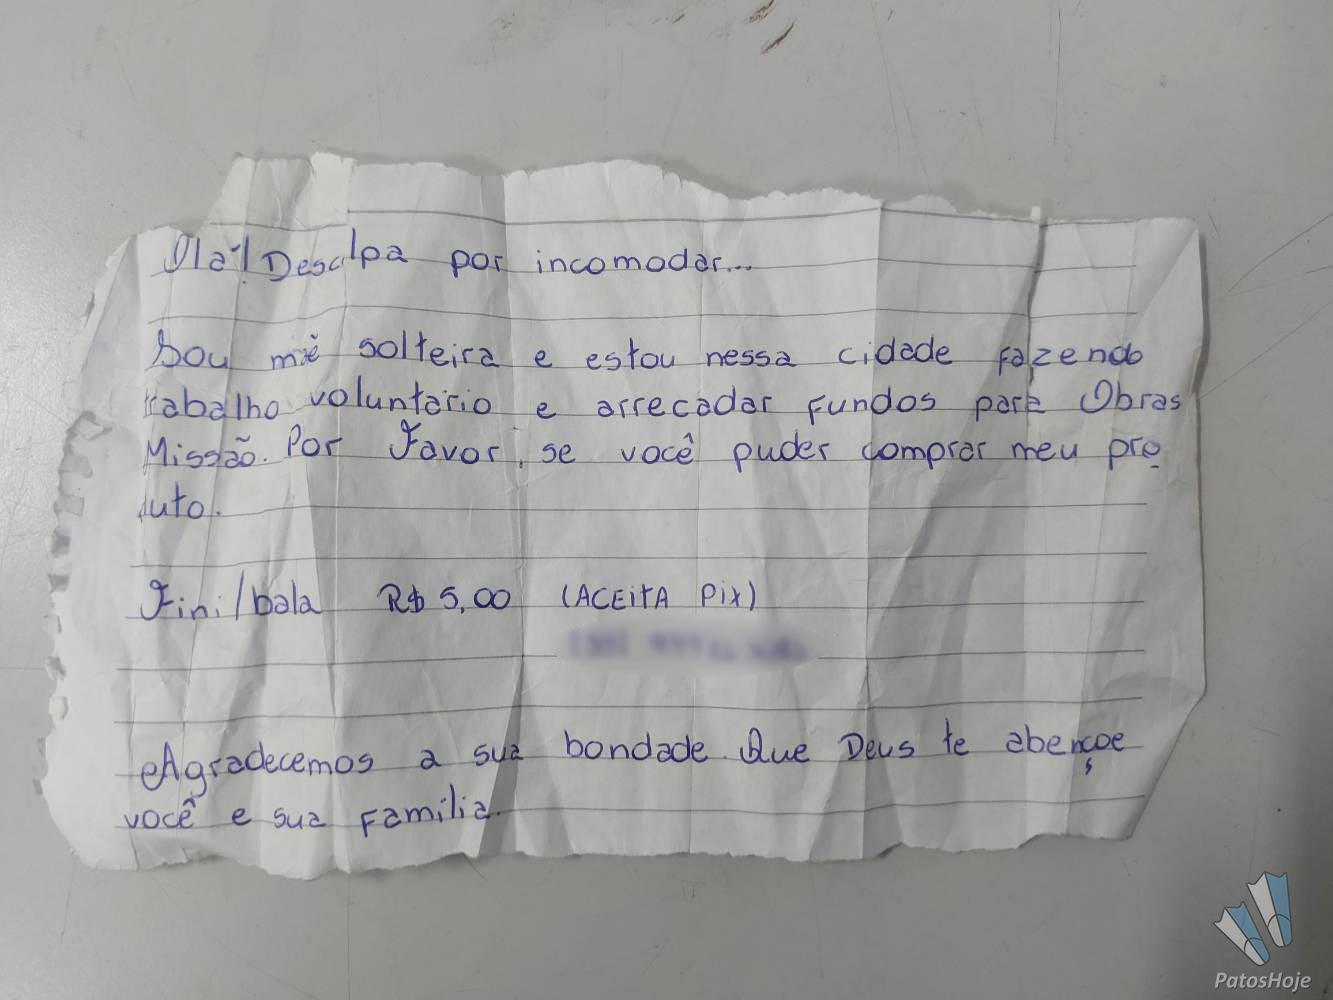 Olá! Desculpa por incomodar...
Sou mãe solteira e estou nessa cidade fazendo
trabalho voluntário e arrecadar fundos para Obras
Missão. Por Favor, se você puder comprar meu pro
duto.
Fini/bala R$ 5,00 (ACEITA PIX)
Agradecemos a sua bondade. Que Deus te abençoe
você e sua família.
PatosHoje